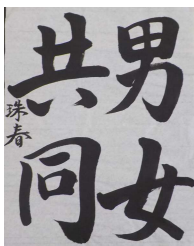 男女
共同
珠春